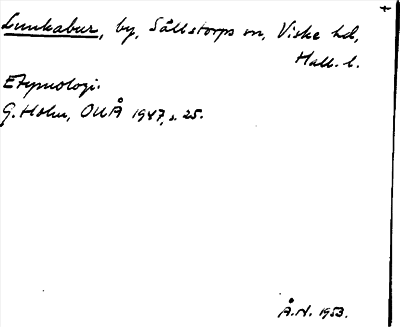 Lunkabur, by, Sällstorps sn, Viske hd,
Hall. l.
Etymologi.
G. Holm, OUÅ 1947, s. 25.
Å.N. 1953.